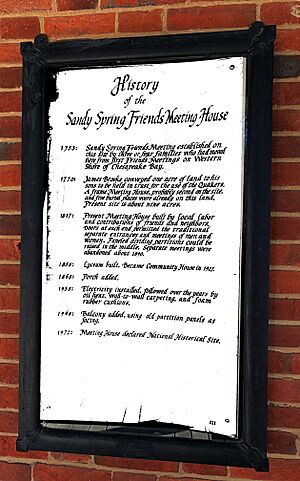 History
of the
Sandy Spring Friends Meeting House
1753: Sandy Spring Friends Meeting established on
this site by three or four families who had moved
here from first Friends Meetings on Western
Shore of Chesapeake Bay.
1770: James Brooke conveyed one acre of land to his
sons to be held in trust for the use of the Quakers.
A frame Meeting House, probably second on the site,
and five burial places were already on this land.
Present site is about nine acres.
1817: Present Meeting House built by local labor
and contributions of friends and neighbors.
Doors at each end permitted the traditional
separate entrances and meetings of men and
women. Paneled dividing partitions could be
raised in the middle. Separate meetings were
abandoned about 1890.
Lyceum built. Became Community House in
Porch added.
Electricity installed, followed over the years by
oil heat, wall-to-wall carpeting, and foam
rubber cushions.
Balcony added, using old partition panels as
facing.
1972: Meeting House declared National Historical Site.